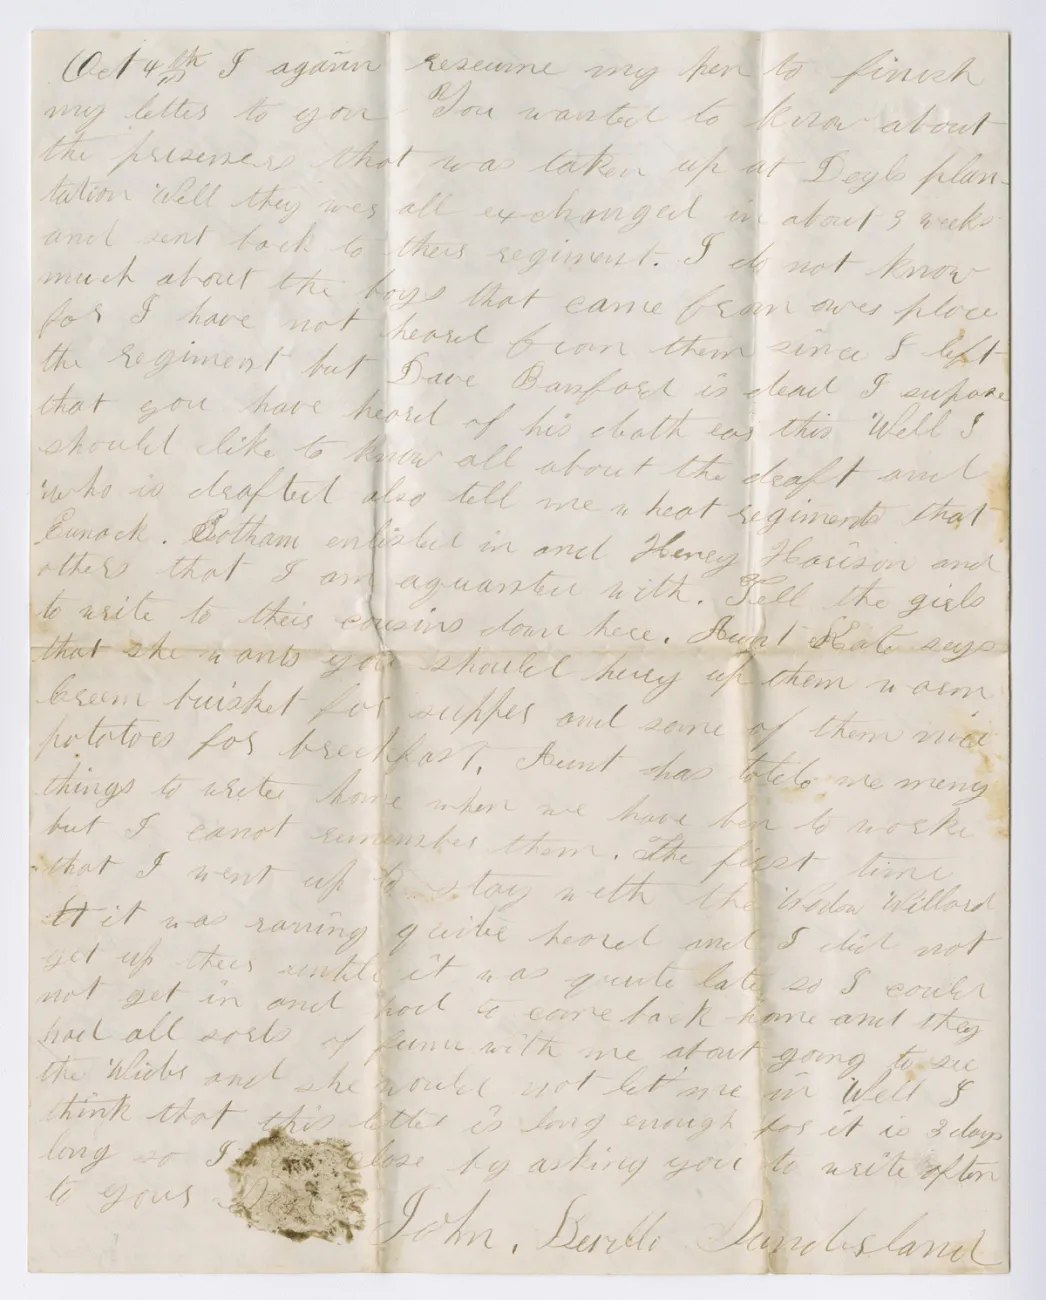 Oct 4th I again reseume my pen to finish
my letter to you You wanted to know about
the preseners that was taken up at Doyls plan-
tation Well they wer all exchanged in about 3 weeks
and sent back to ther regiment. I do not know
much about the boys that came from owr place
for I have not heard from them since I left
the regiment but Dave Banford is dead I supose
that you have heard of his death eas this Well I
should like to know all about the draft and
who is drafted also tell me wheat regiments that
Eunock. Botham enlisted in and Henry Harison and
others that I am aquanted with. Tell the girls
to write to their cousins down here. Aunt Kate says
that she wants you should hury up them warm
breem buisket for supper and some of them nice
potatoes for breckfast. Aunt has told me meny
things to write home when we have ben to worke
but I canot remember them. The first time
that I went up to stay with the Wodow Willard
it was raning quite heard and I did not
get up ther untill it was quite late so I could
not get in and had to come back home and they
had all sorts of funn with me about going to see
the Widow and she would not let me in Well I
think that this letter is long enough for it is 3 days
long so I close by asking you to write often
to yours
John.